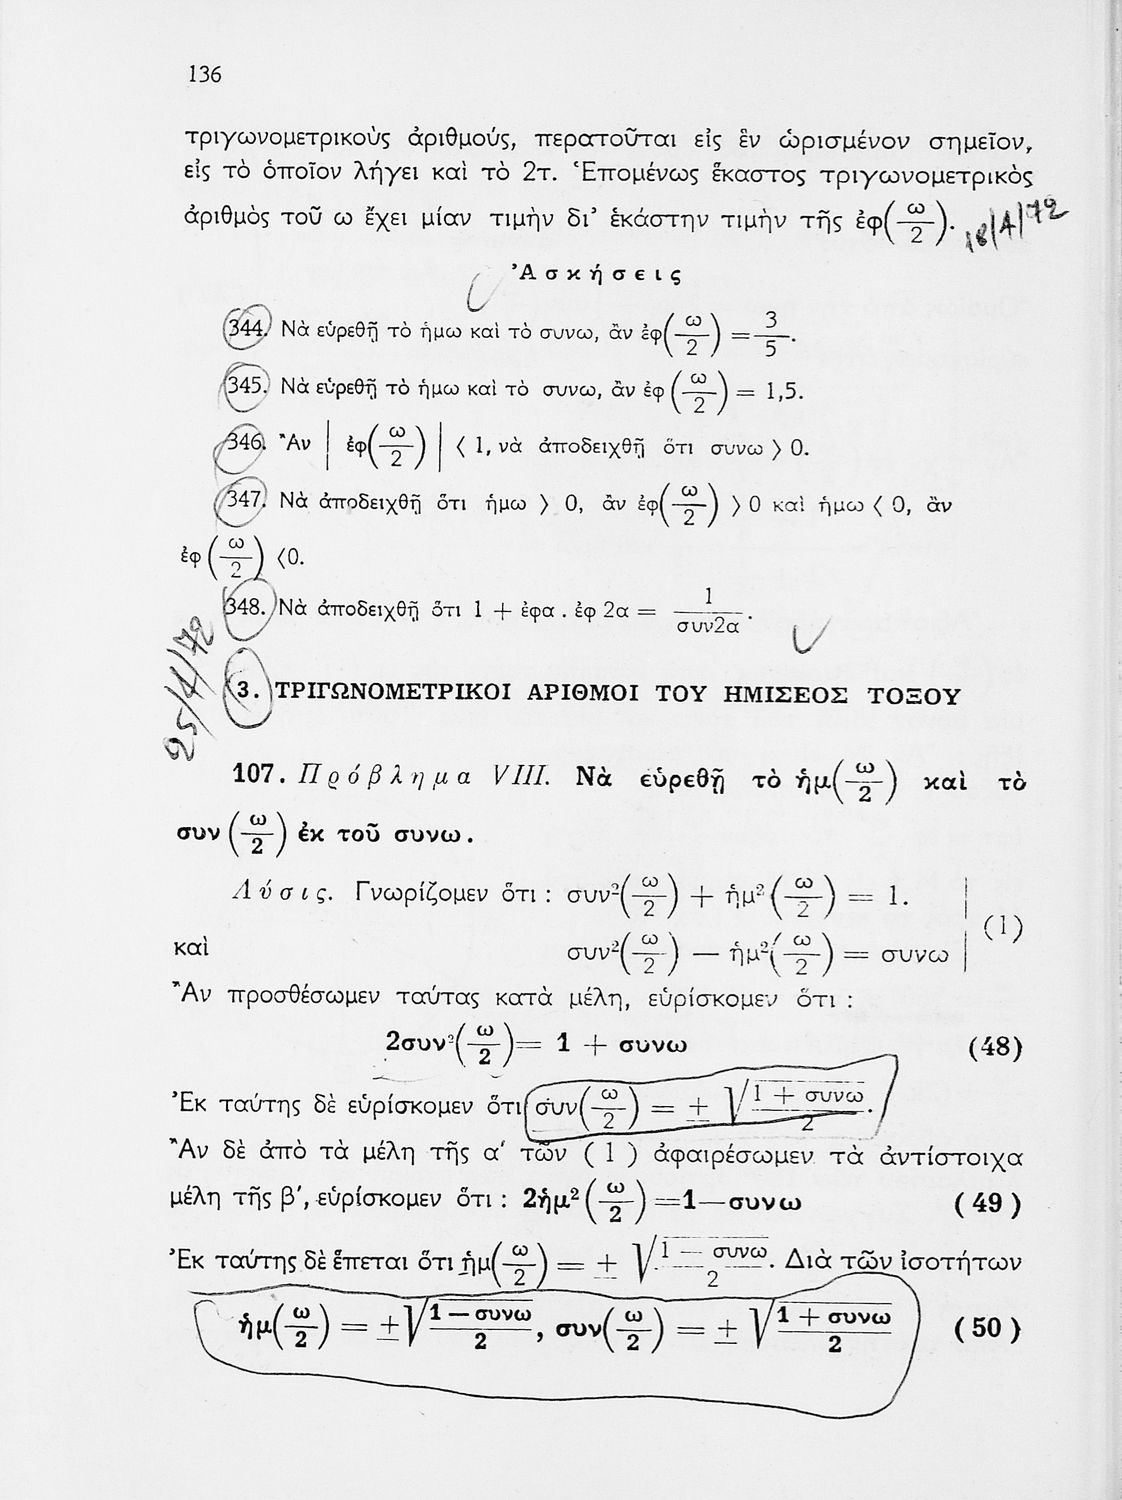 136
τριγωνομετρικοὺς ἀριθμούς, περατοῦται εἰς ἓν ὡρισμένον σημεῖον,
εἰς τὸ ὁποῖον λήγει καὶ τὸ 2τ. Ἑπομένως ἕκαστος τριγωνομετρικὸς
ἀριθμὸς τοῦ ω ἔχει μίαν τιμὴν δι’ ἑκάστην τιμὴν τῆς ἐφ(ω/2). 18/4/72
Ἀσκήσεις
344. Νὰ εὑρεθῇ τὸ ἡμω καὶ τὸ συνω, ἂν ἐφ(ω/2) = 3/5.
345. Νὰ εὑρεθῇ τὸ ἡμω καὶ τὸ συνω, ἂν ἐφ(ω/2) = 1,5.
346. Ἂν |ἐφ(ω/2)| < 1, νὰ ἀποδειχθῇ ὅτι συνω > 0.
347. Νὰ ἀποδειχθῇ ὅτι ἡμω > 0, ἂν ἐφ(ω/2) > 0 καὶ ἡμω < 0, ἂν
ἐφ(ω/2) < 0.
348. Νὰ ἀποδειχθῇ ὅτι 1 + ἐφα . ἐφ 2α = 1/συν2α.
25/4/72
3. ΤΡΙΓΩΝΟΜΕΤΡΙΚΟΙ ΑΡΙΘΜΟΙ ΤΟΥ ΗΜΙΣΕΟΣ ΤΟΞΟΥ
107. Πρόβλημα VIII. Νὰ εὑρεθῇ τὸ ἡμ(ω/2) καὶ τὸ
συν(ω/2) ἐκ τοῦ συνω.
Λύσις. Γνωρίζομεν ὅτι : συν²(ω/2) + ἡμ²(ω/2) = 1.
(1)
καὶ συν²(ω/2) — ἡμ²(ω/2) = συνω
Ἂν προσθέσωμεν ταύτας κατὰ μέλη, εὑρίσκομεν ὅτι :
2συν²(ω/2) = 1 + συνω (48)
Ἐκ ταύτης δὲ εὑρίσκομεν ὅτι συν(ω/2) = ± √((1 + συνω)/2).
Ἂν δὲ ἀπὸ τὰ μέλη τῆς α′ τῶν ( 1 ) ἀφαιρέσωμεν τὰ ἀντίστοιχα
μέλη τῆς β′, εὑρίσκομεν ὅτι : 2ἡμ²(ω/2) = 1—συνω ( 49 )
Ἐκ ταύτης δὲ ἕπεται ὅτι ἡμ(ω/2) = ± √((1 — συνω)/2). Διὰ τῶν ἰσοτήτων
ἡμ(ω/2) = ±√((1 — συνω)/2), συν(ω/2) = ± √((1 + συνω)/2) ( 50 )